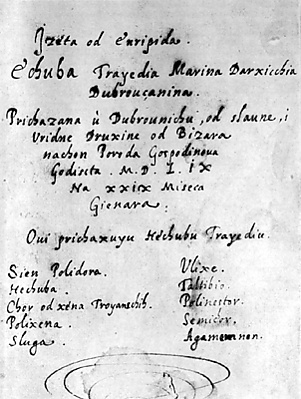 Izeta od Euripida.
Echuba Trayedia Marina Darxicchia
Dubrouçanina.
Prichazana ù Dubrounichu, od slaune, i
Vridne Druxine od Bizara
nachon Poroda Gospodinoua
Godiscta. M.D.LIX
Na XXIX Miseca
Gienara.
Oui prichaxuyu Hechubu Trayediu.
Sien Polidora.
Hechuba.
Chor od xena Troyanschih.
Polixena.
Sluga.
Vlixe.
Taltibio.
Polinestor.
Semichor.
Agamemnon.